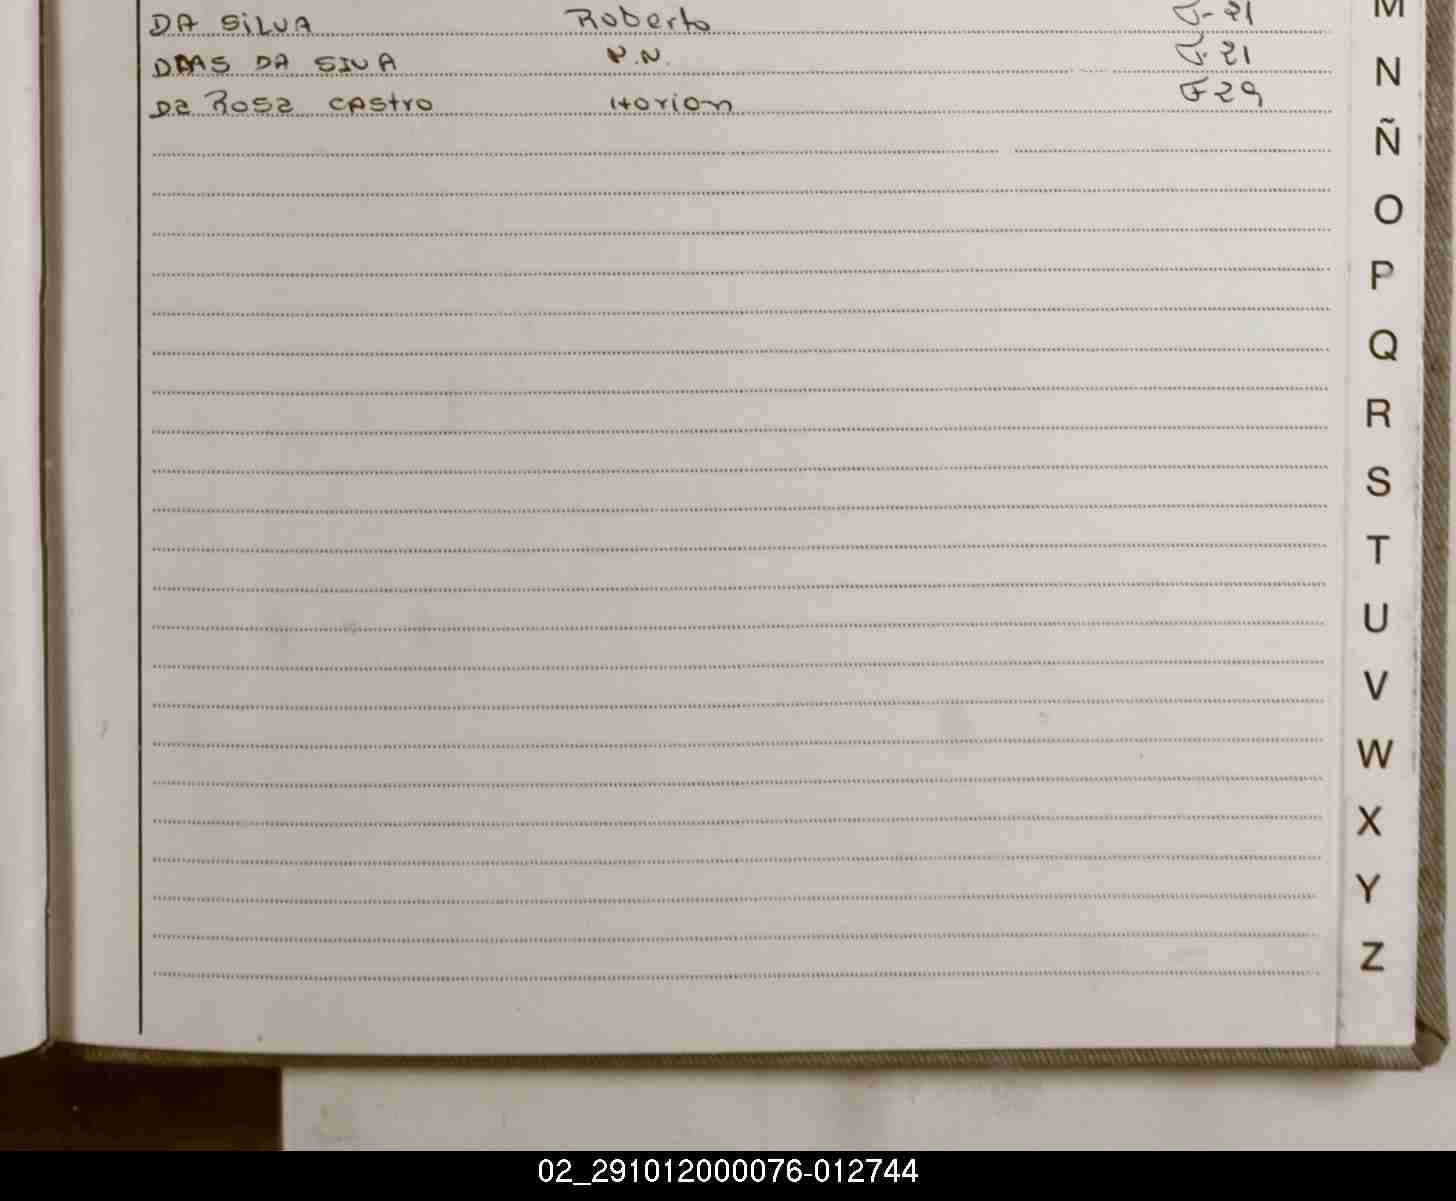 DA SiLVA Roberto F-21
DIAS DA SILVA N.N. F-21
Da Rosa Castro Horion F 29
M
N
Ñ
O
P
Q
R
S
T
U
V
W
X
Y
Z
02_291012000076-012744